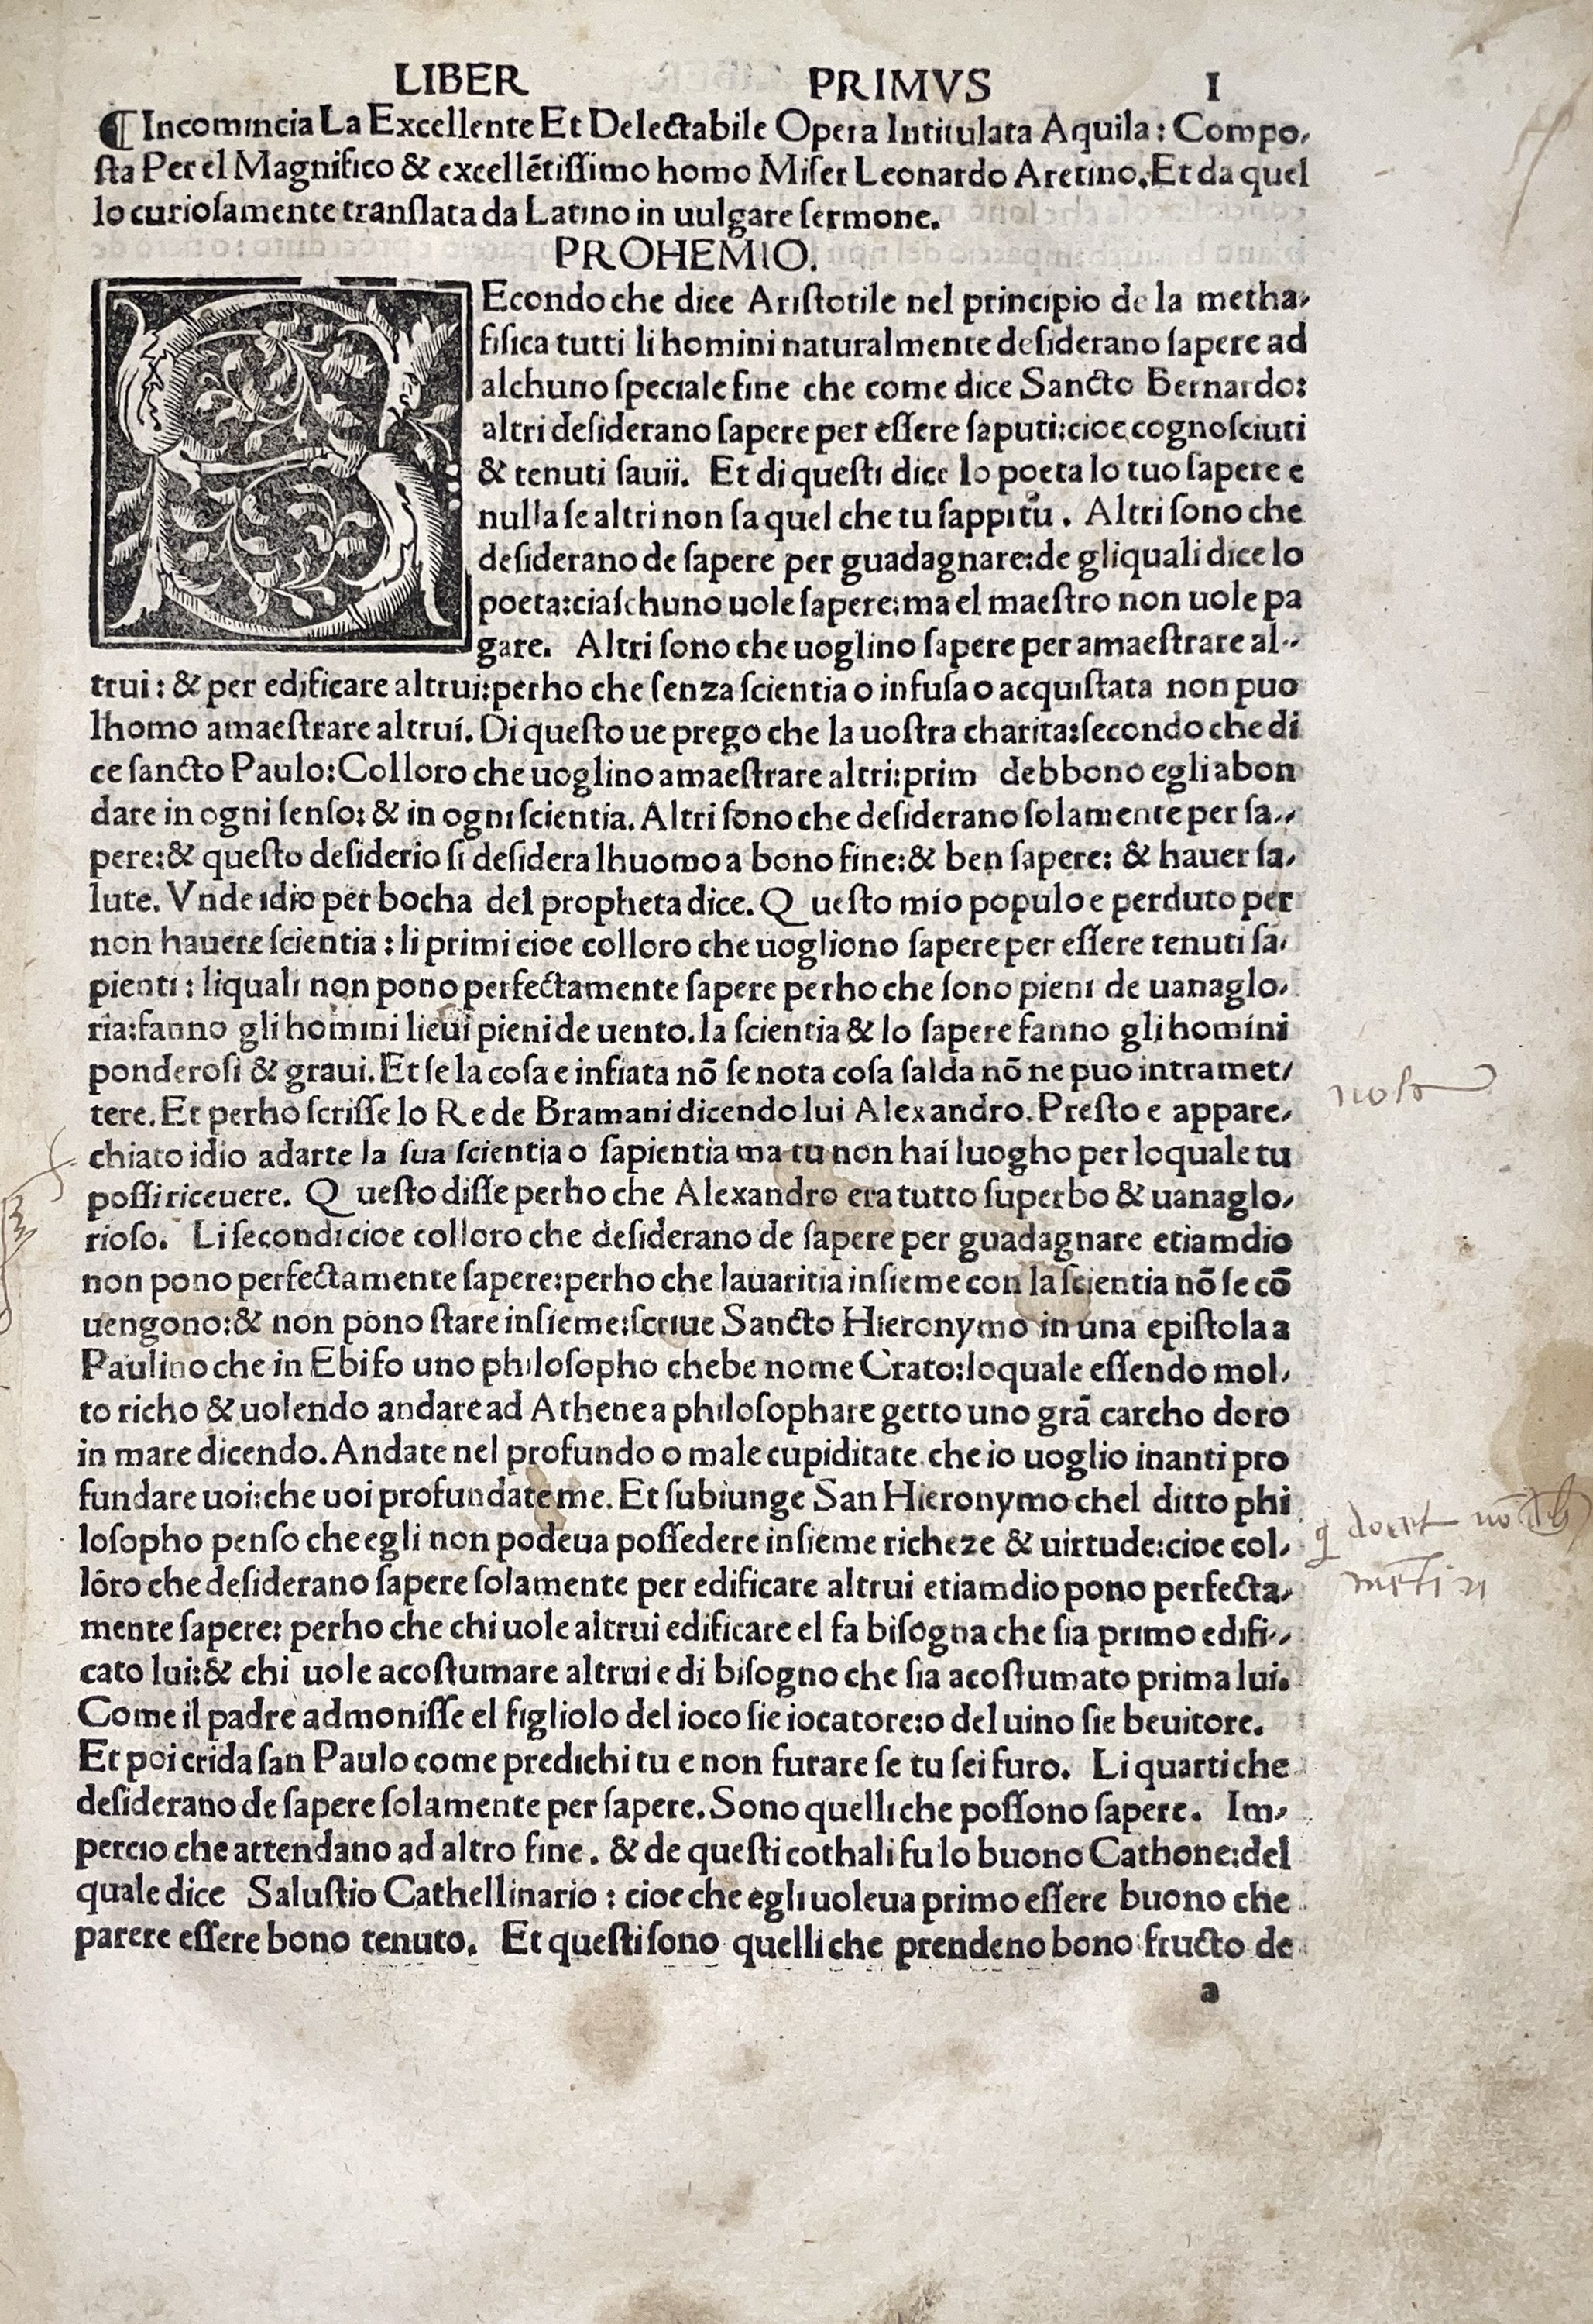 LIBER PRIMVS I
¶ Incomincia La Excellente Et Delectabile Opera Intitulata Aquila: Compo,
ſta Per el Magnifico & excellētiſſimo homo Miſer Leonardo Aretino. Et da quel
lo curioſamente tranſlata da Latino in uulgare ſermone.
PROHEMIO.
SEcondo che dice Ariſtotile nel principio de la metha,
fiſica tutti li homini naturalmente deſiderano ſapere ad
alchuno ſpeciale fine che come dice Sancto Bernardo:
altri deſiderano ſapere per eſſere ſaputi:cioe cognoſciuti
& tenuti ſauii. Et di queſti dice lo poeta lo tuo ſapere e
nulla ſe altri non ſa quel che tu ſappi tu. Altri ſono che
deſiderano de ſapere per guadagnare:de gliquali dice lo
poeta:ciaſchuno uole ſapere:ma el maeſtro non uole pa
gare. Altri ſono che uoglino ſapere per amaeſtrare al,,
trui: & per edificare altrui:perho che ſenza ſcientia o infuſa o acquiſtata non puo
lhomo amaeſtrare altruí. Di queſto ue prego che la uoſtra charita:ſecondo che di
ce ſancto Paulo:Colloro che uoglino amaeſtrare altri:prim debbono egli abon
dare in ogni ſenſo: & in ogni ſcientia. Altri ſono che deſiderano ſolamente per ſa,,
pere:& queſto deſiderio ſi deſidera lhuomo a bono fine:& ben ſapere: & hauer ſa,
lute. Vnde idio per bocha del propheta dice. Q ueſto mío populo e perduto per
non hauere ſcientia: li primi cioe colloro che uogliono ſapere per eſſere tenuti ſa,
pienti: liquali non pono perfectamente ſapere perho che ſono pieni de uanaglo,
ria:fanno gli homini lieui pieni de uento. la ſcientia & lo ſapere fanno gli homíni
ponderoſi & graui. Et ſe la coſa e infiata nō ſe nota coſa ſalda nō ne puo intramet/
tere. Et perho ſcriſſe lo Re de Bramani dicendo lui Alexandro. Preſto e appare,
chiato idio adarte la ſua ſcientia o ſapientia ma tu non haí luogho per loquale tu
poſſi riceuere. Q ueſto diſſe perho che Alexandro era tutto ſuperbo & uanaglo,
rioſo. Li ſecondi cioe colloro che deſiderano de ſapere per guadagnare etiamdio
non pono perfectamente ſapere:perho che lauaritia inſieme con la ſcientia nō ſe cō
uengono:& non pono ſtare inſieme:ſcriue Sancto Hieronymo in una epiſtola a
Paulino che in Ebifo uno philoſopho chebe nome Crato:loquale eſſendo mol,
to richo & uolendo andare ad Athene a philoſophare getto uno grā carcho doro
in mare dicendo. Andate nel profundo o male cupiditate che io uoglio inanti pro
fundare uoi:che uoi profundate me. Et ſubiunge San Hieronymo chel ditto phi
loſopho penſo che egli non podeua poſſedere inſieme richeze & uirtude:cioe col,
lóro che deſiderano ſapere ſolamente per edificare altrui etiamdio pono perfecta,
mente ſapere: perho che chi uole altrui edificare el fa biſogna che ſia primo edifi,,
cato lui:& chi uole acoſtumare altrui e di biſogno che ſia acoſtumato prima lui.
Come il padre admoniſſe el figliolo del ioco ſie iocatore:o del uino ſie beuitore.
Et poi crida ſan Paulo come predichi tu e non furare ſe tu ſei furo. Li quarti che
deſiderano de ſapere ſolamente per ſapere. Sono quelli che poſſono ſapere. Im,
percio che attendano ad altro fine. & de queſti cothali fu lo buono Cathone:del
quale dice Saluſtio Cathellinario: cioe che egli uoleua primo eſſere buono che
parere eſſere bono tenuto. Et queſti ſono quelli che prendeno bono fructo de
a